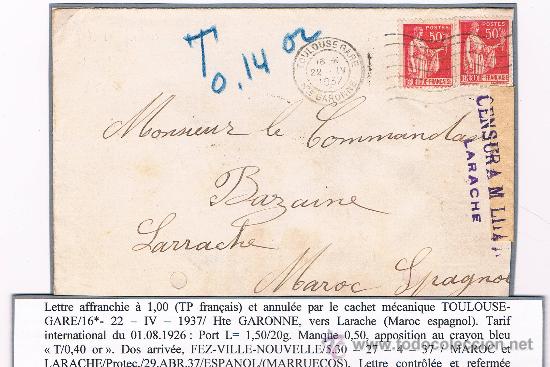 T 0.14 or
TOULOUSE GARE
16 *
22 IV
1937
HTE GARONNE
POSTES
50c
POSTES
50c
CENSURA MILITAR
LARACHE
Monsieur le Commandant
Bazaine
Larrache
Maroc Espagnol
Lettre affranchie à 1,00 (TP français) et annulée par le cachet mécanique TOULOUSE-
GARE/16*- 22 – IV – 1937/ Hte GARONNE, vers Larache (Maroc espagnol). Tarif
international du 01.08.1926 : Port L= 1,50/20g. Manque 0,50, apposition au crayon bleu
« T/0,40 or ». Dos arrivée, FEZ-VILLE-NOUVELLE/5,30 – 27 – 4 – 37 / MAROC et
LARACHE/Protec./29.ABR.37/ESPANOL/(MARRUECOS). Lettre contrôlée et refermée
todocoleccion